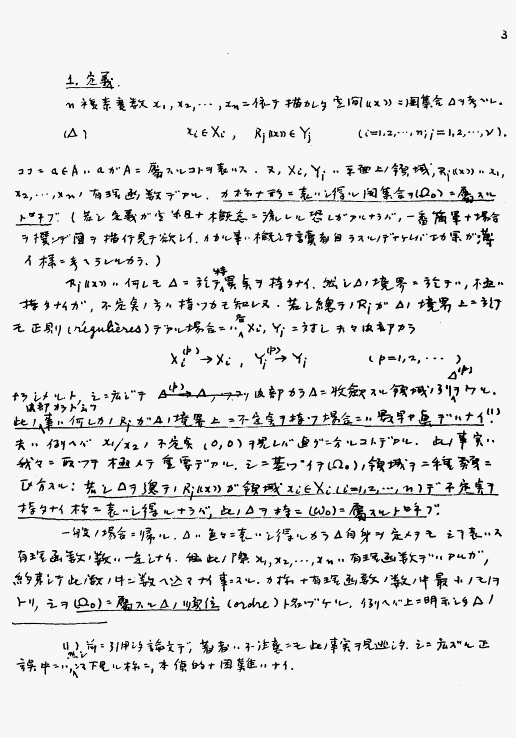 3
1. 定義.
n 複素変数 x₁, x₂, ⋯, xₙ ニ依テ描カレタ空間((x))ニ閉集合 Δ ヲ考ヘル.
(Δ) xᵢ∈Xᵢ, Rⱼ((x))∈Yⱼ (i=1,2,⋯,n; j=1,2,⋯,ν).
ココニ a∈A ハ a ガ A ニ属スルコトヲ表ハス. 又, Xᵢ, Yⱼ ハ平面上ノ領域, Rⱼ((x)) ハ x₁,
x₂, ⋯, xₙ ノ有理函数デアル. カ様ナ形ニ表ハシ得ル閉集合ヲ(Ω₀)ニ属スル
ト呼ブ. (若シ定義ガ空虚ナ概念ニ流レル恐レガアルナラバ, 一番簡単ナ場合
ヲ撰ンデ図ヲ描イテ見テ欲シイ. カカル事ハ概シテ読者自ラスルノデナケレバ効果ガ薄
イ様ニ考ヘラレルカラ.)
Rⱼ((x)) ハ何レモ Δ ニ於テ特異点ヲ持タナイ. 然シ Δ ノ境界ニ於テハ, 極ハ
持タナイガ, 不定点ノ方ハ持ツカモ知レヌ. 若シ総テノ Rⱼ ガ Δ ノ境界上ニ於テ
モ正則 (régulières) デアル場合ニハ, 各 Xᵢ, Yⱼ ニ対シ夫々内部カラ
Xᵢ⁽ᵖ⁾→Xᵢ, Yⱼ⁽ᵖ⁾→Yⱼ (p=1,2,⋯)
ナラシメルト, 之ニ応ジテ内部カラ Δ ニ収斂スル領域 Δ⁽ᵖ⁾ ノ列ヲ得ル.
此ノ事ハ何レカノ Rⱼ ガ Δ ノ境界上ニ不定点ヲ持ツ場合ニハ最早正シクナイ.⁽¹⁾
夫ハ例ヘバ x₁/x₂ ノ不定点 (0,0) ヲ見レバ直グニ分ルコトデアル. 此ノ事実ハ
我々ニ取ツテ極メテ重要デアル. 之ニ基ヅイテ(Ω₀)ノ領域ヲ二種類ニ
区分スル: 若シ Δ ヲ総テノ Rⱼ((x)) ガ領域 xᵢ∈Xᵢ (i=1,2,⋯,n) デ不定点ヲ
持タナイ様ニ表ハシ得ルナラバ, 此ノ Δ ヲ特ニ (ω₀)ニ属スルト呼ブ.
一般ノ場合ニ帰ル. Δ ハ色々ニ表ハシ得ルカラ Δ 自身ヲ定メテモ之ヲ表ハス
有理函数ノ数ハ一定シナイ. 但此ノ際 x₁, x₂, ⋯, xₙ ハ有理函数デハアルガ,
約束シテ此ノ数ノ中ニ数ヘ込マナイ事ニスル. カ様ナ有理函数ノ数ノ中最小ノモノヲ
トリ, 之ヲ(Ω₀)ニ属スル Δ ノ順位 (ordre) ト名ヅケル. 例ヘバ上ニ明示シタ Δ ノ
(1) 前ニ引用シタ論文デ, 著者ハ不注意ニモ此ノ事実ヲ見逃シタ. 之ニ応ズル正
誤中ニハ, 然シ下見ル様ニ, 本質的ナ困難ハナイ.